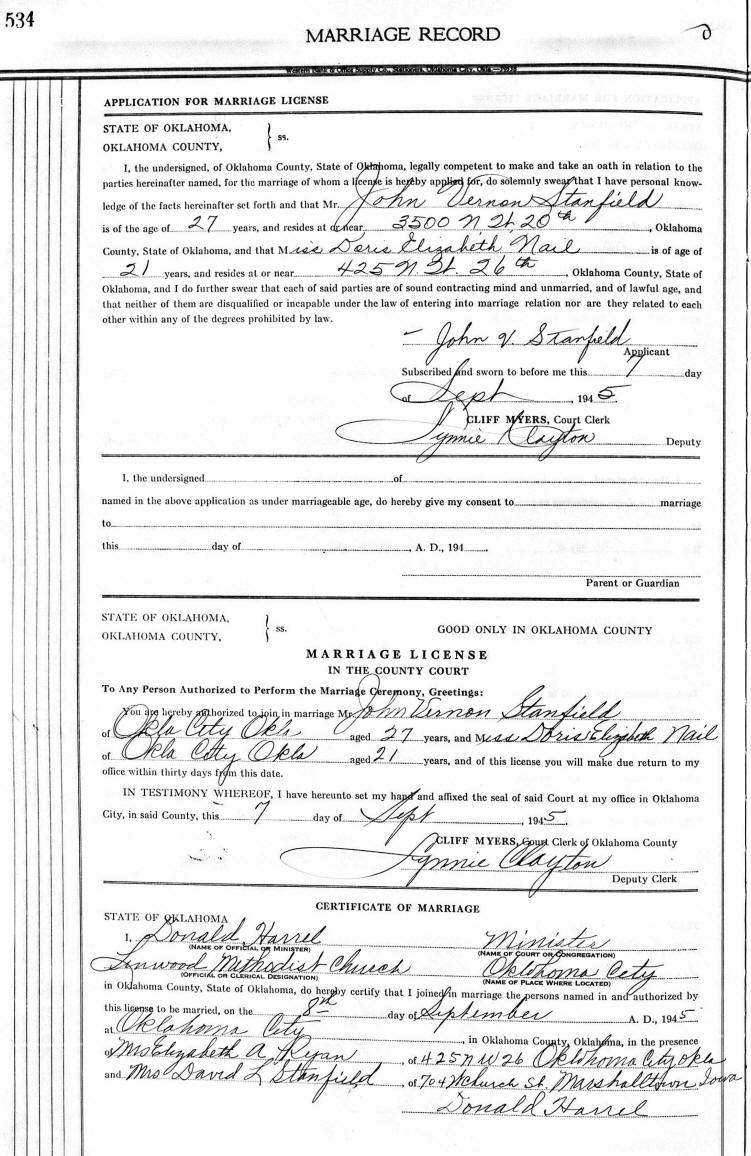 534
MARRIAGE RECORD
APPLICATION FOR MARRIAGE LICENSE
STATE OF OKLAHOMA,
OKLAHOMA COUNTY, } ss.
I, the undersigned, of Oklahoma County, State of Oklahoma, legally competent to make and take an oath in relation to the
parties hereinafter named, for the marriage of whom a license is hereby applied for, do solemnly swear that I have personal know-
ledge of the facts hereinafter set forth and that Mr. John Vernon Stanfield
is of the age of 27 years, and resides at or near 3500 N St. 20th, Oklahoma
County, State of Oklahoma, and that Miss Doris Elizabeth Nail is of age of
21 years, and resides at or near 425 N. St. 26th, Oklahoma County, State of
Oklahoma, and I do further swear that each of said parties are of sound contracting mind and unmarried, and of lawful age, and
that neither of them are disqualified or incapable under the law of entering into marriage relation nor are they related to each
other within any of the degrees prohibited by law.
John V. Stanfield
Applicant
Subscribed and sworn to before me this 7 day
of Sept, 1945.
CLIFF MYERS, Court Clerk
Lynnie Clayton Deputy
I, the undersigned of
named in the above application as under marriageable age, do hereby give my consent to marriage
to
this day of , A. D., 194
Parent or Guardian
STATE OF OKLAHOMA,
OKLAHOMA COUNTY, } ss. GOOD ONLY IN OKLAHOMA COUNTY
MARRIAGE LICENSE
IN THE COUNTY COURT
To Any Person Authorized to Perform the Marriage Ceremony, Greetings:
You are hereby authorized to join in marriage Mr. John Vernon Stanfield
of Okla City Okla aged 27 years, and Miss Doris Elizabeth Nail
of Okla City Okla aged 21 years, and of this license you will make due return to my
office within thirty days from this date.
IN TESTIMONY WHEREOF, I have hereunto set my hand and affixed the seal of said Court at my office in Oklahoma
City, in said County, this 7 day of Sept, 1945.
CLIFF MYERS, Court Clerk of Oklahoma County
Lynnie Clayton
Deputy Clerk
CERTIFICATE OF MARRIAGE
STATE OF OKLAHOMA
I, Donald Harrel Minister
(NAME OF OFFICIAL OR MINISTER) (NAME OF COURT OR CONGREGATION)
Linwood Methodist Church Oklahoma City
(OFFICIAL OR CLERICAL DESIGNATION) (NAME OF PLACE WHERE LOCATED)
in Oklahoma County, State of Oklahoma, do hereby certify that I joined in marriage the persons named in and authorized by
this license to be married, on the 8th day of September A. D., 1945
at Oklahoma City, in Oklahoma County, Oklahoma, in the presence
of Mrs Elizabeth A Ryan, of 425 N W 26 Oklahoma City Okla
and Mrs David L Stanfield, of 704 W Church St. Marshalltown Iowa
Donald Harrel